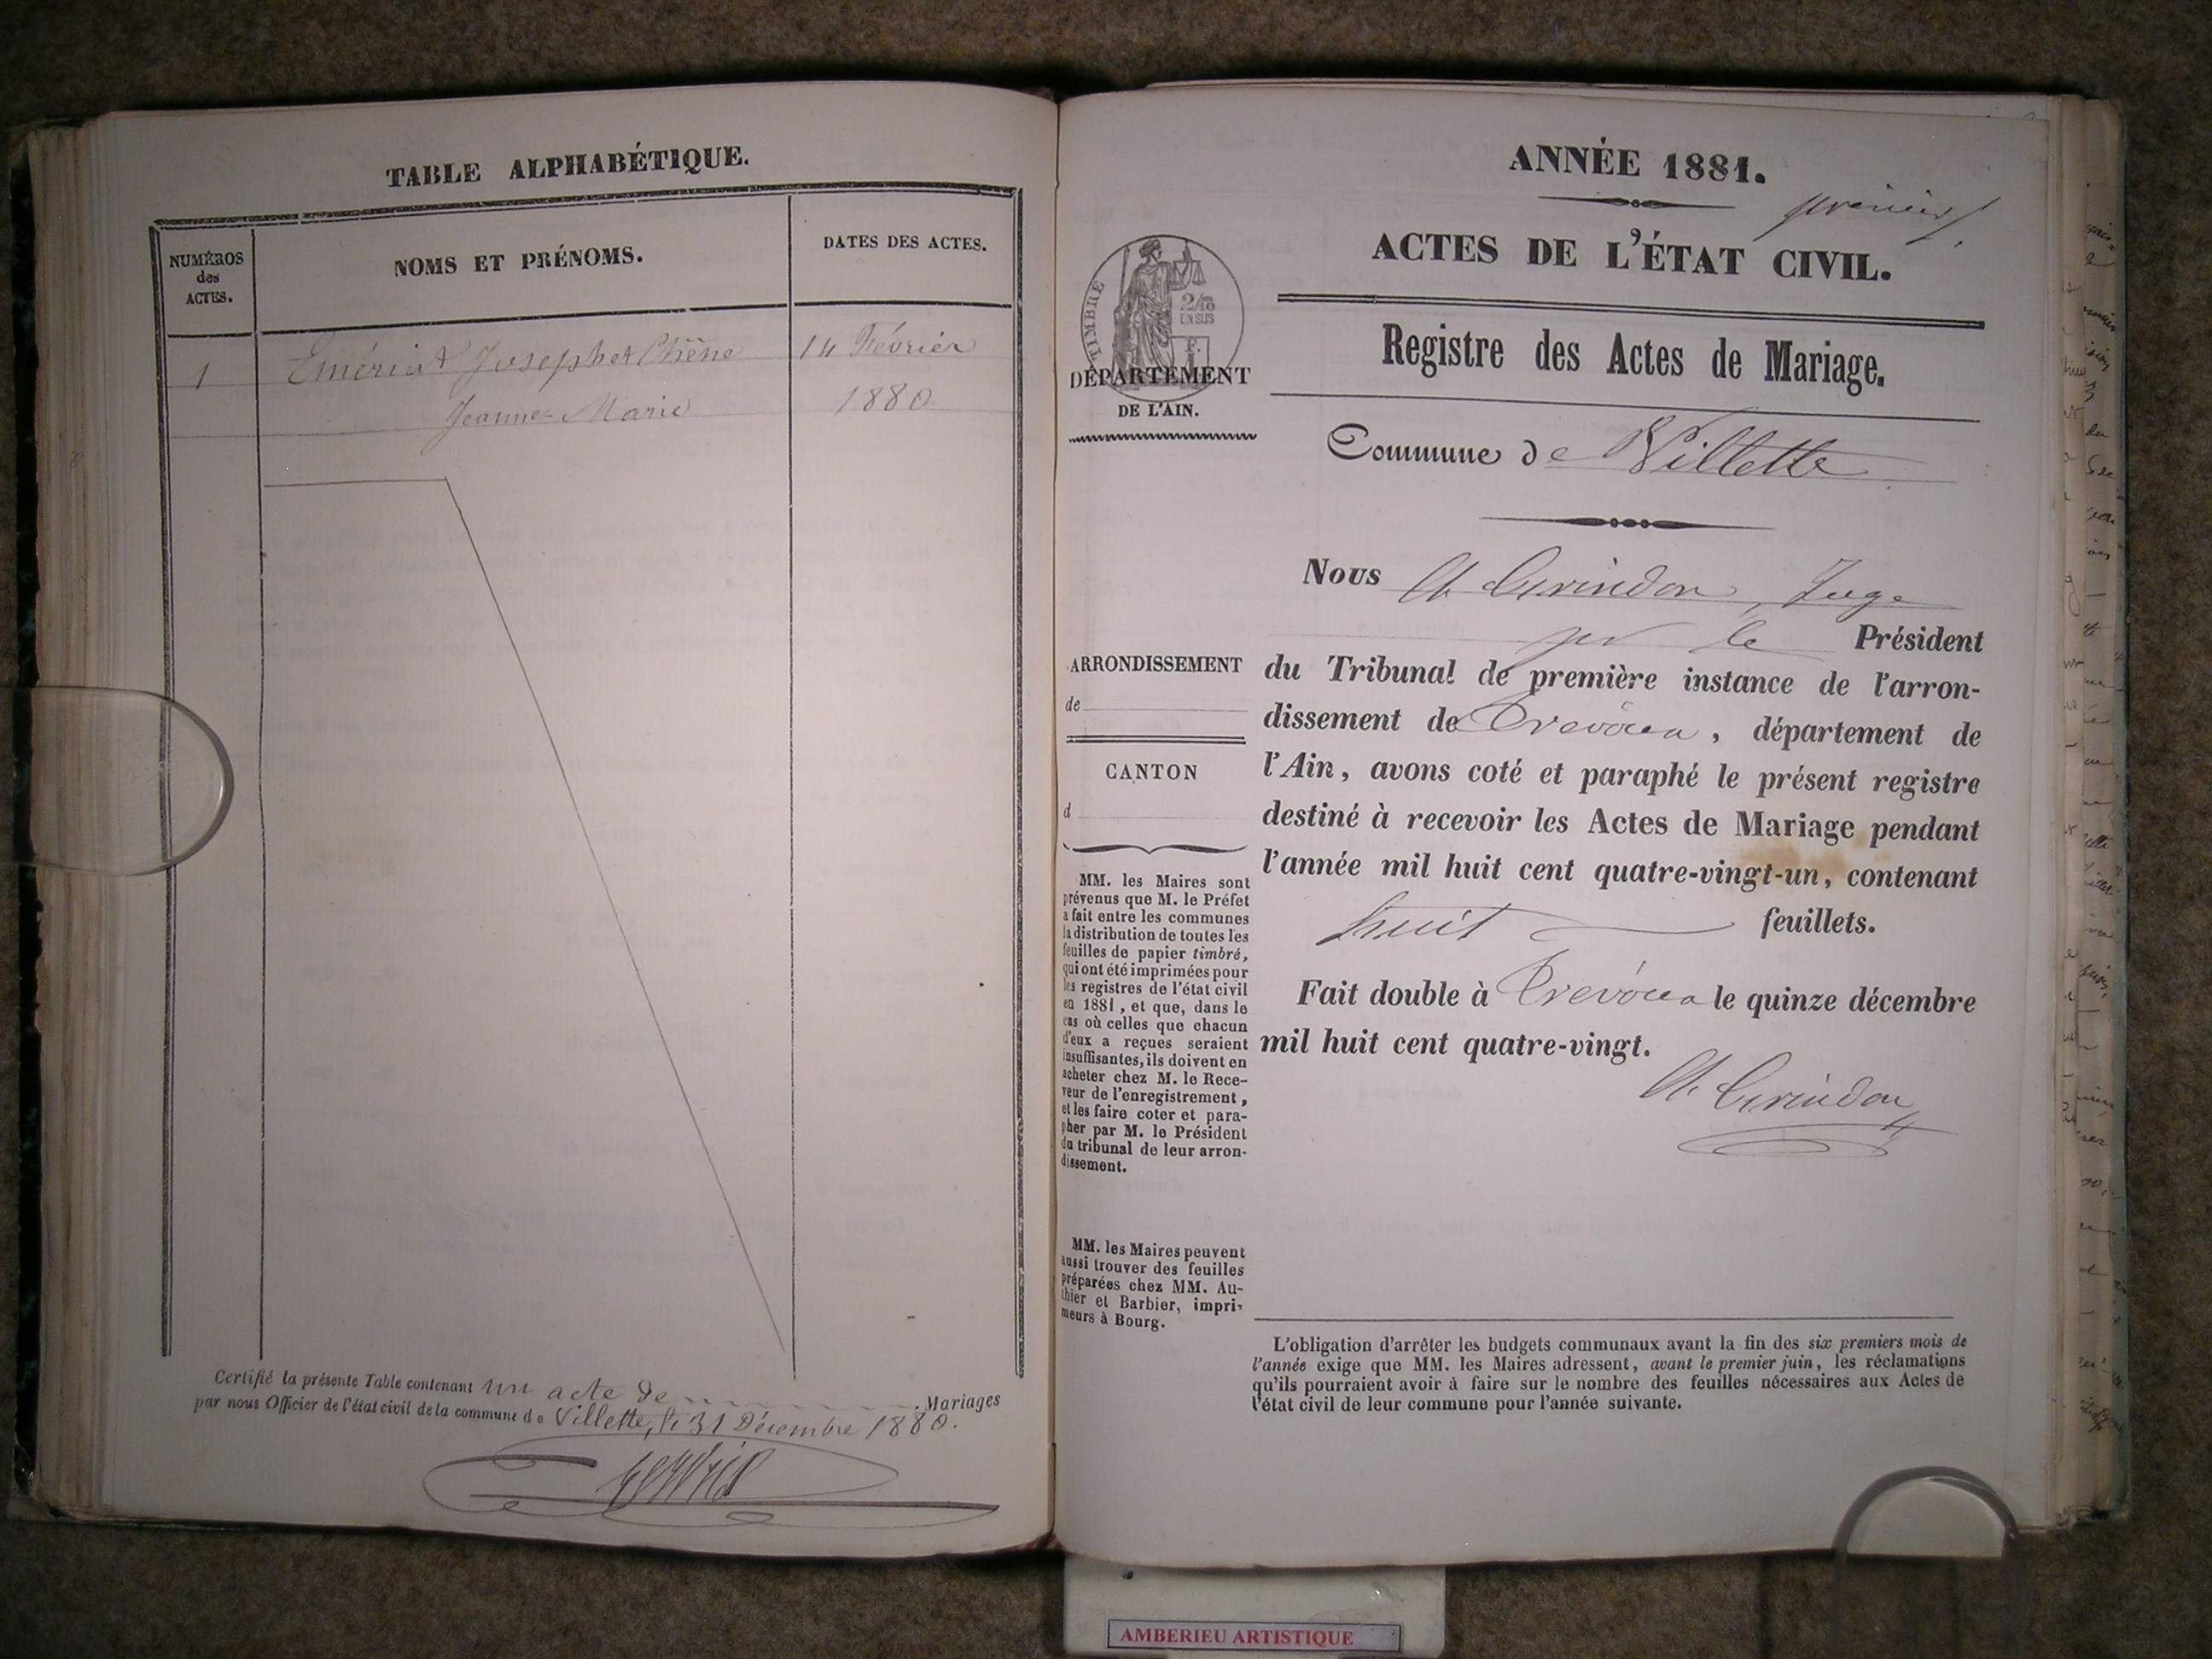 TABLE ALPHABÉTIQUE.
NUMÉROS
des
ACTES.
NOMS ET PRÉNOMS.
DATES DES ACTES.
1
Emériat Joseph et Chêne
14 Février
Jeanne-Marie
1880
Certifié la présente Table contenant un acte de Mariages
par nous Officier de l'état civil de la commune de Villette, le 31 Décembre 1880.
ANNÉE 1881.
premier
ACTES DE L'ÉTAT CIVIL.
TIMBRE
2/10
EN SUS
DÉPARTEMENT
DE L'AIN.
Registre des Actes de Mariage.
Commune de Villette
Nous Juge
pr le Président
du Tribunal de première instance de l'arron-
dissement de Trévoux, département de
l'Ain, avons coté et paraphé le présent registre
destiné à recevoir les Actes de Mariage pendant
l'année mil huit cent quatre-vingt-un, contenant
huit feuillets.
Fait double à Trévoux le quinze décembre
mil huit cent quatre-vingt.
ARRONDISSEMENT
de
CANTON
d
MM. les Maires sont
prévenus que M. le Préfet
a fait entre les communes
la distribution de toutes les
feuilles de papier timbré,
qui ont été imprimées pour
les registres de l'état civil
en 1881, et que, dans le
cas où celles que chacun
d'eux a reçues seraient
insuffisantes, ils doivent en
acheter chez M. le Rece-
veur de l'enregistrement,
et les faire coter et para-
pher par M. le Président
du tribunal de leur arron-
dissement.
MM. les Maires peuvent
aussi trouver des feuilles
préparées chez MM. Au-
thier et Barbier, impri-
meurs à Bourg.
L'obligation d'arrêter les budgets communaux avant la fin des six premiers mois de
l'année exige que MM. les Maires adressent, avant le premier juin, les réclamations
qu'ils pourraient avoir à faire sur le nombre des feuilles nécessaires aux Actes de
l'état civil de leur commune pour l'année suivante.
AMBERIEU ARTISTIQUE